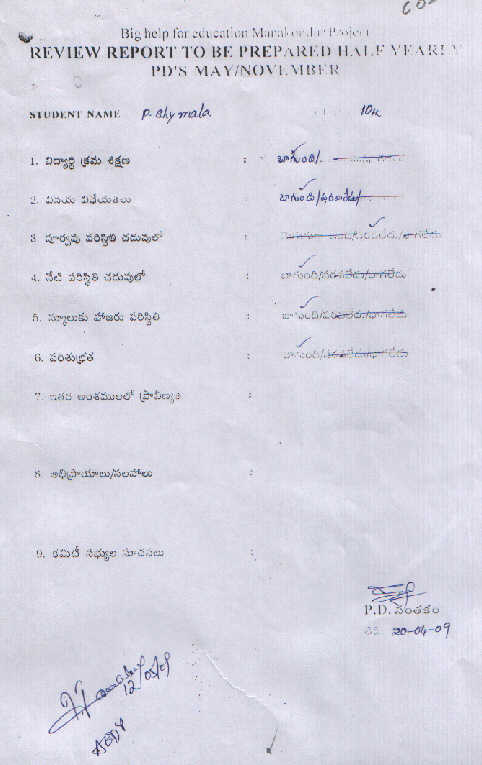 Big help for education Manakondur Project
REVIEW REPORT TO BE PREPARED HALF YEARLY
PD'S MAY/NOVEMBER
STUDENT NAME P. Shymala 10th
1. విద్యార్థి క్రమ శిక్షణ : బాగుంది/
2. వినయ విధేయతలు : బాగుంది/పరవాలేదు/
3. పూర్వపు పరిస్థితి చదువులో : /పరవాలేదు/బాగలేదు
4. నేటి పరిస్థితి చదువులో : బాగుంది/పరవాలేదు/బాగలేదు
5. స్కూలుకు హాజరు పరిస్థితి : బాగుంది/పరవాలేదు/బాగలేదు
6. పరిశుభ్రత : బాగుంది/పరవాలేదు/బాగలేదు
7. ఇతర అంశములలో ప్రావీణ్యత :
8. అభిప్రాయాలు/సలహాలు :
9. కమిటీ సభ్యుల సూచనలు :
P.D. సంతకం
తేది 20-04-09
12/05/09